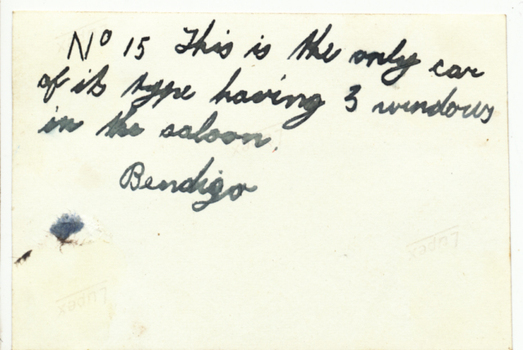 Nº 15 This is the only car
of its type having 3 windows
in the saloon.
Bendigo
Lupex
Lupex